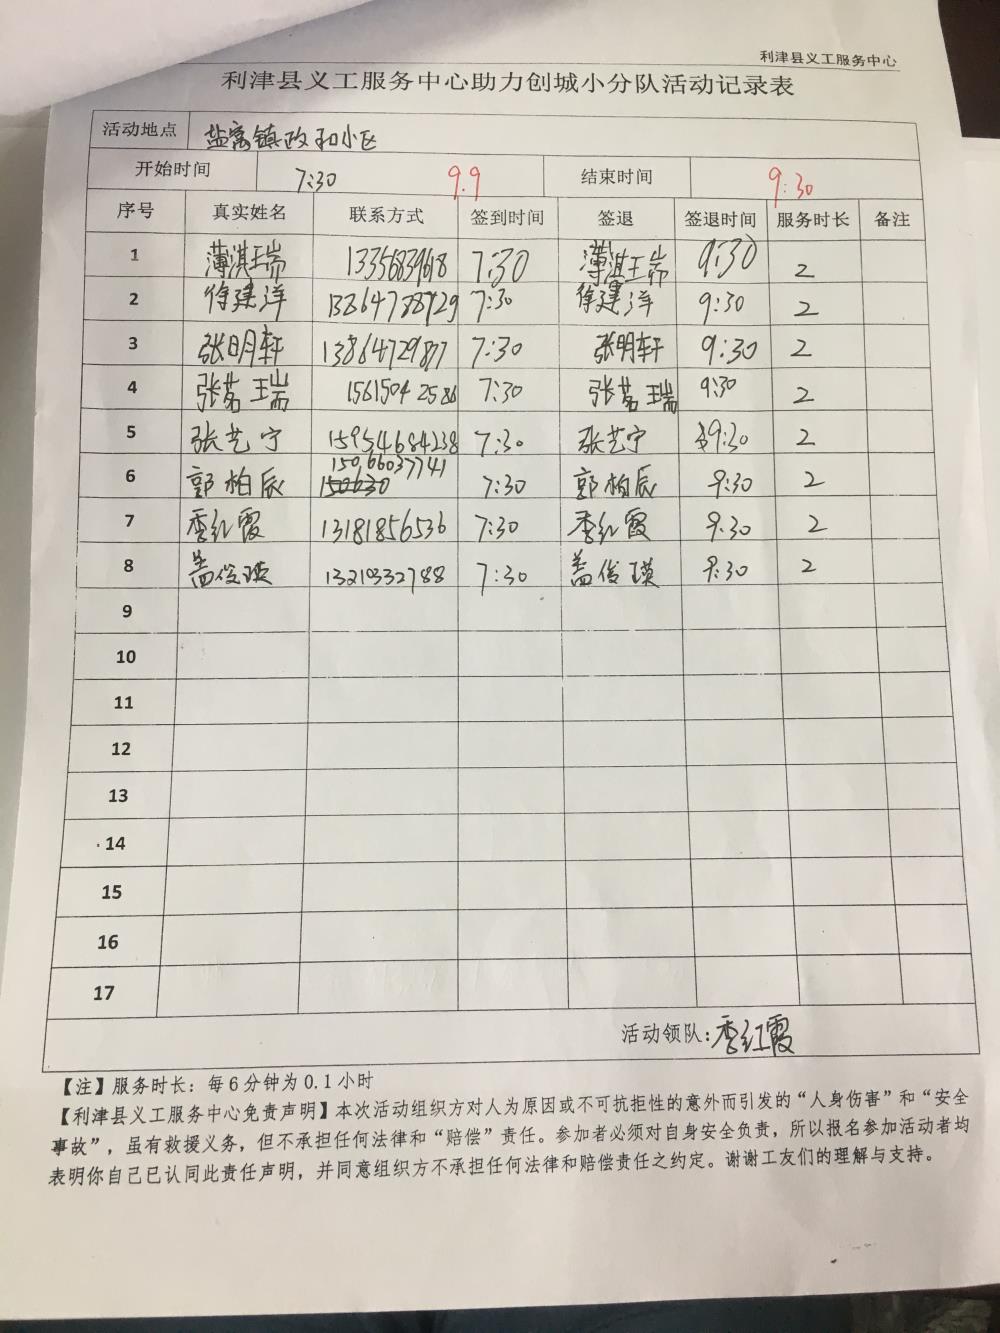 利津县义工服务中心
利津县义工服务中心助力创城小分队活动记录表
活动地点 盐窝镇政和小区
开始时间 7:30 9.9 结束时间 9:30
序号 真实姓名 联系方式 签到时间 签退 签退时间 服务时长 备注
1 薄淇瑞 13356839618 7:30 薄淇瑞 9:30 2
2 徐建洋 13864788929 7:30 徐建洋 9:30 2
3 张明轩 13864729877 7:30 张明轩 9:30 2
4 张茗瑞 15615042586 7:30 张茗瑞 9:30 2
5 张艺宁 15954684238 7:30 张艺宁 9:30 2
6 郭柏辰 15066037741 7:30 郭柏辰 9:30 2
7 季红霞 13181856536 7:30 季红霞 9:30 2
8 盖俊瑛 13210332788 7:30 盖俊瑛 9:30 2
9
10
11
12
13
14
15
16
17
活动领队:季红霞
【注】服务时长：每6分钟为0.1小时
【利津县义工服务中心免责声明】本次活动组织方对人为原因或不可抗拒性的意外而引发的“人身伤害”和“安全
事故”，虽有救援义务，但不承担任何法律和“赔偿”责任。参加者必须对自身安全负责，所以报名参加活动者均
表明你自己已认同此责任声明，并同意组织方不承担任何法律和赔偿责任之约定。谢谢工友们的理解与支持。